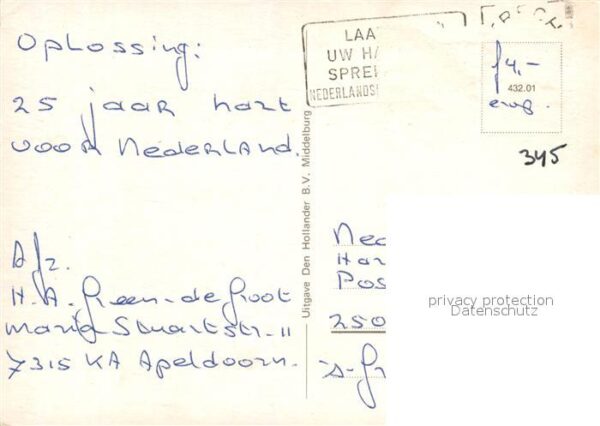 Oplossing:
25 jaar hart
voor Nederland.
Afz.
H.A. Green-de Groot
Maria Stuartstr. 11
7315 KA Apeldoorn.
Uitgave Den Hollander B.V. Middelburg
LAA
UW HA
SPREI
NEDERLANDS
f 4,-
432.01
345
Ned
Har
Pos
250
's-Gr
privacy protection
Datenschutz